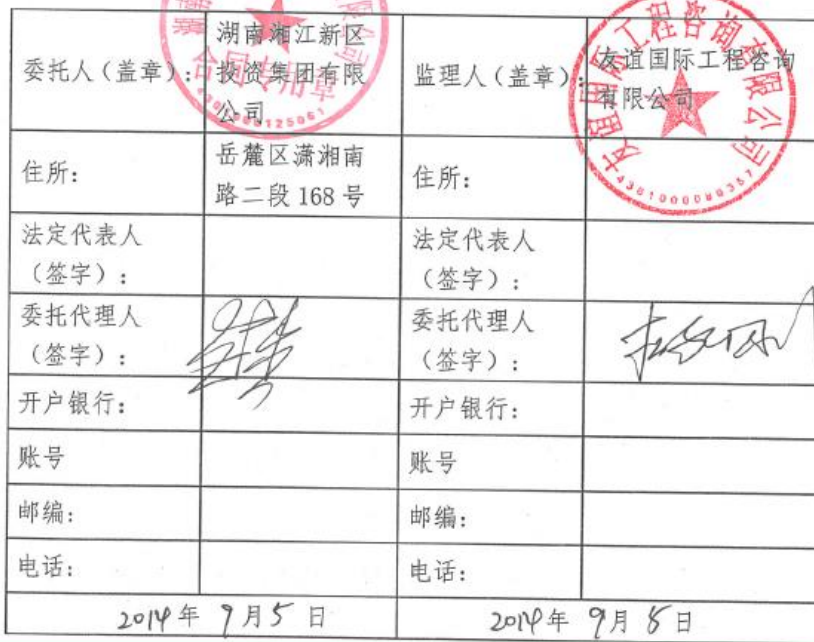 委托人（盖章）： 湖南湘江新区投资集团有限公司 监理人（盖章）： 友谊国际工程咨询有限公司
合同专用章
友谊国际工程咨询有限公司
住所： 岳麓区潇湘南路二段 168 号 住所：
法定代表人（签字）： 法定代表人（签字）：
委托代理人（签字）： 委托代理人（签字）：
开户银行： 开户银行：
账号 账号
邮编： 邮编：
电话： 电话：
2014年 9月5日 2014年 9月5日